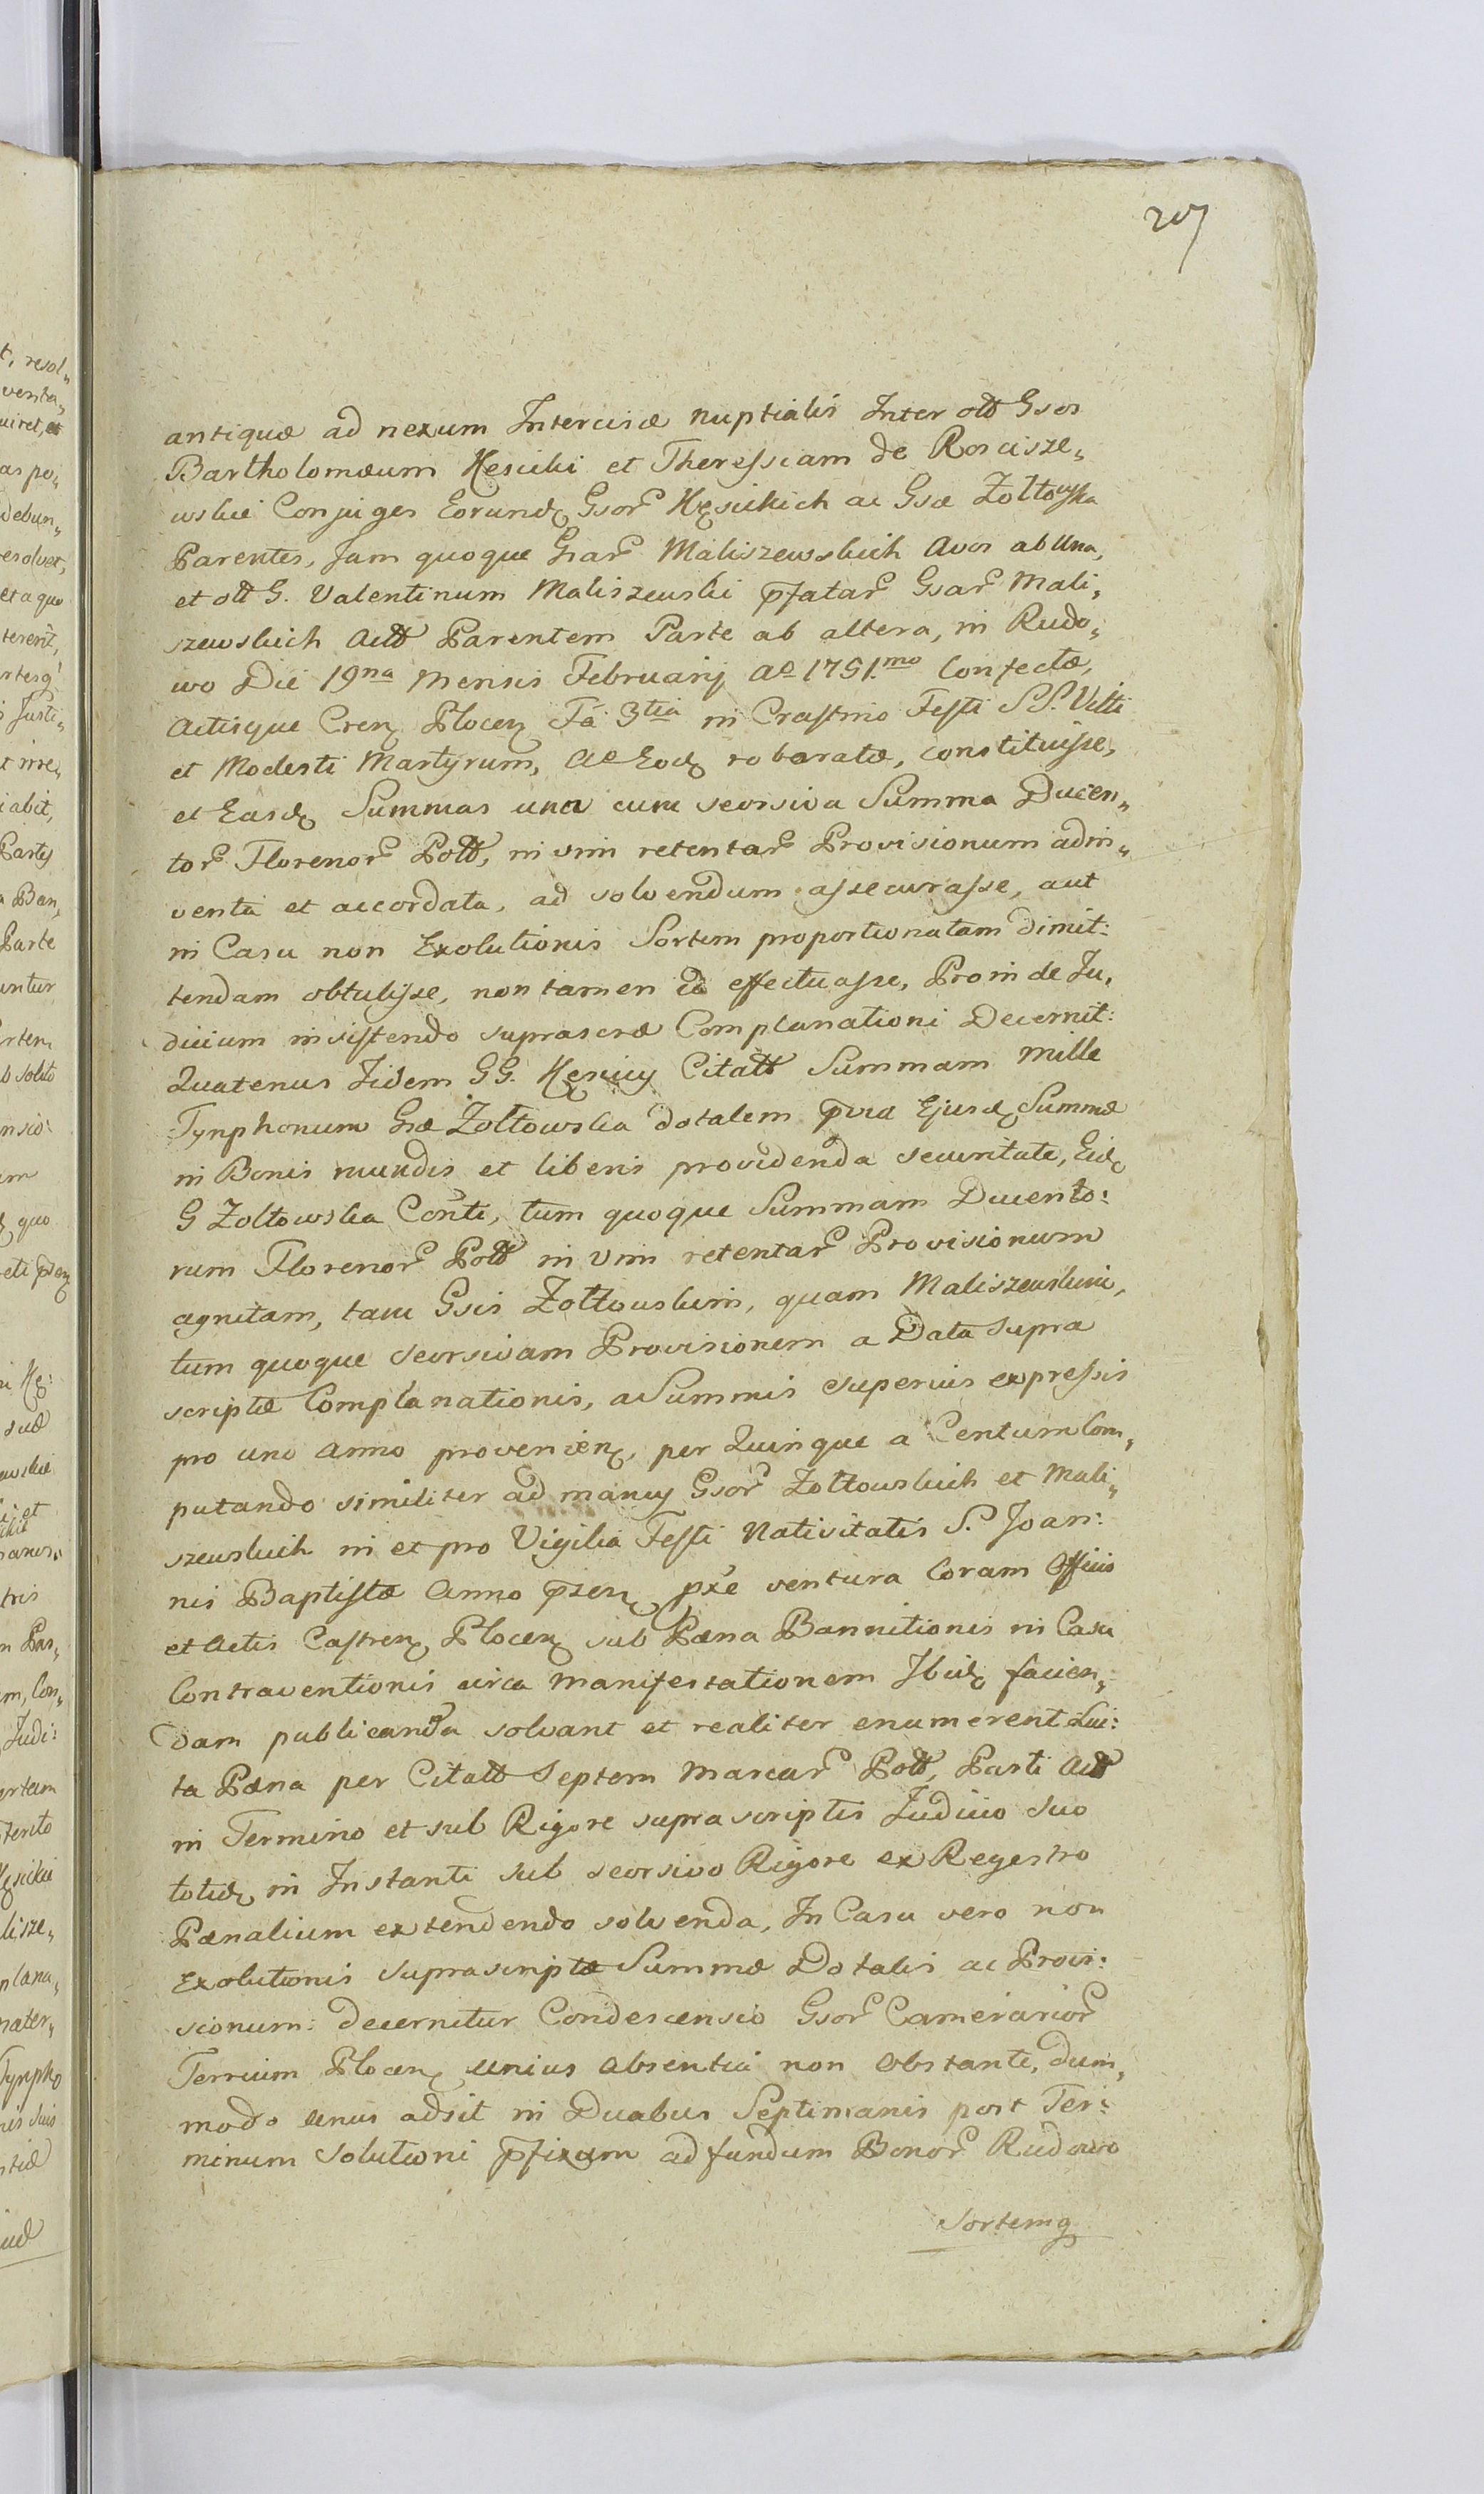 207
antiquæ ad nexum Intercisæ nuptialis Inter olt Gsos
Bartholomæum Kęsicki et Theressiam de Roscisze„
wskie Conjuges Eorund Gsor Kęsickich ac Gsæ Zołtowska
Parentes, Jam quoque Gsar Maliszewskich Avos ab Una,
et olt G. Valentinum Maliszewski pfatar Gsar Mali„
szewskich Act Parentem Parte ab altera, in Rudo„
wo Die 19na Mensis Februarij Ao 1751mo Confectæ,
Actisque Cren Plocen Fa 3tia in Crastino Festi SS. Viti
et Modesti Martyrum, Ao Eod roboratæ, constituisse,
et Easd Summas una cum seorsiva Summa Ducen„
tor Florenor Polt, in vim retentar Provisionum adin„
venta et accordata, ad solvendum assecurasse, aut
in Casu non Exolutionis Sortem proportionatam dimit:
tendam obtulisse, non tamen id effectuasse, Proinde Ju„
dicium insistendo suprascræ Complanationi Decernit:
Quatenus Iidem GG. Kęsiccy Citatt Summam Mille
Tynphonum Gsæ Zołtowska dotalem pvia Ejusd Summæ
in Bonis mundis et liberis providenda securitate, Eid
G Zołtowska Conti, tum quoque Summam Ducento:
rum Florenor Polt in Vim retentar Provisionum
agnitam, tam Gsis Zołtowskim, quam Maliszewskim,
tum quoque seorsivam Provisionem a Data supra
scriptæ Complanationis, a Summis superius expressis
pro uno Anno provenien, per Quinque a Centum Com„
putando similiter ad manus Gsor Zołtowskich et Mali„
szewskich in et pro Vigilia Festi Nativitatis S. Joan:
nis Baptistæ Anno pzen pxe ventura Coram Officio
et Actis Castren Plocen sub Pæna Bannitionis in Casu
Contraventionis circa Manifestationem Ibid facien„
dam publicanda solvant et realiter enumerent Lui:
ta Pæna per Citatt Septem Marcar Polt, Parti Act
in Termino et sub Rigore suprascriptis Judicio suo
totid in Instanti sub seorsivo Rigore ex Regestro
Pænalium extendendo solvenda, In Casu vero non
Exolutionis suprascriptæ Summæ Dotalis ac Provi:
sionum: decernitur Condescensio Gsor Camerarior
Terrium Plocen, unius absentia non obstante, dum„
modo unus adsit in Duabus Septimanis post Ter:
minum Solutioni pfixum ad fundum Bonor Rudowo
Sortemq